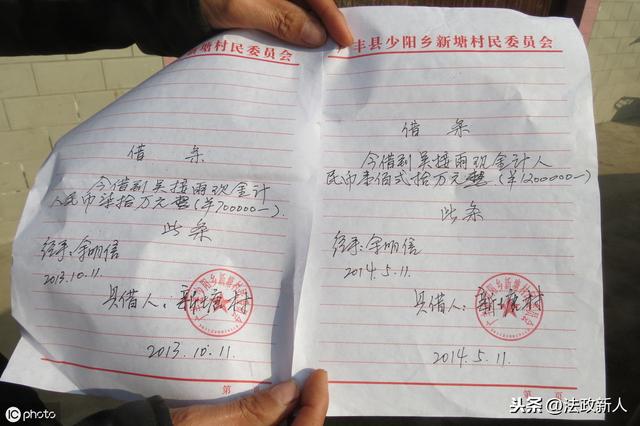 塘村民委员会
借 条
今借到吴接雨现金计
人民币柒拾万元整(¥700000—).
此条
经手:余明信
2013.10.11.
具借人:新塘村
2013.10.11.
第 页
丰县少阳乡新塘村民委员会
借 条
今借到吴接雨现金计人
民币壹佰弍拾万元整(¥1200000—)
此条
经手:余明信
2014.5.11.
具借人:新塘村
2014.5.11.
第 页
iC photo
头条@法政新人